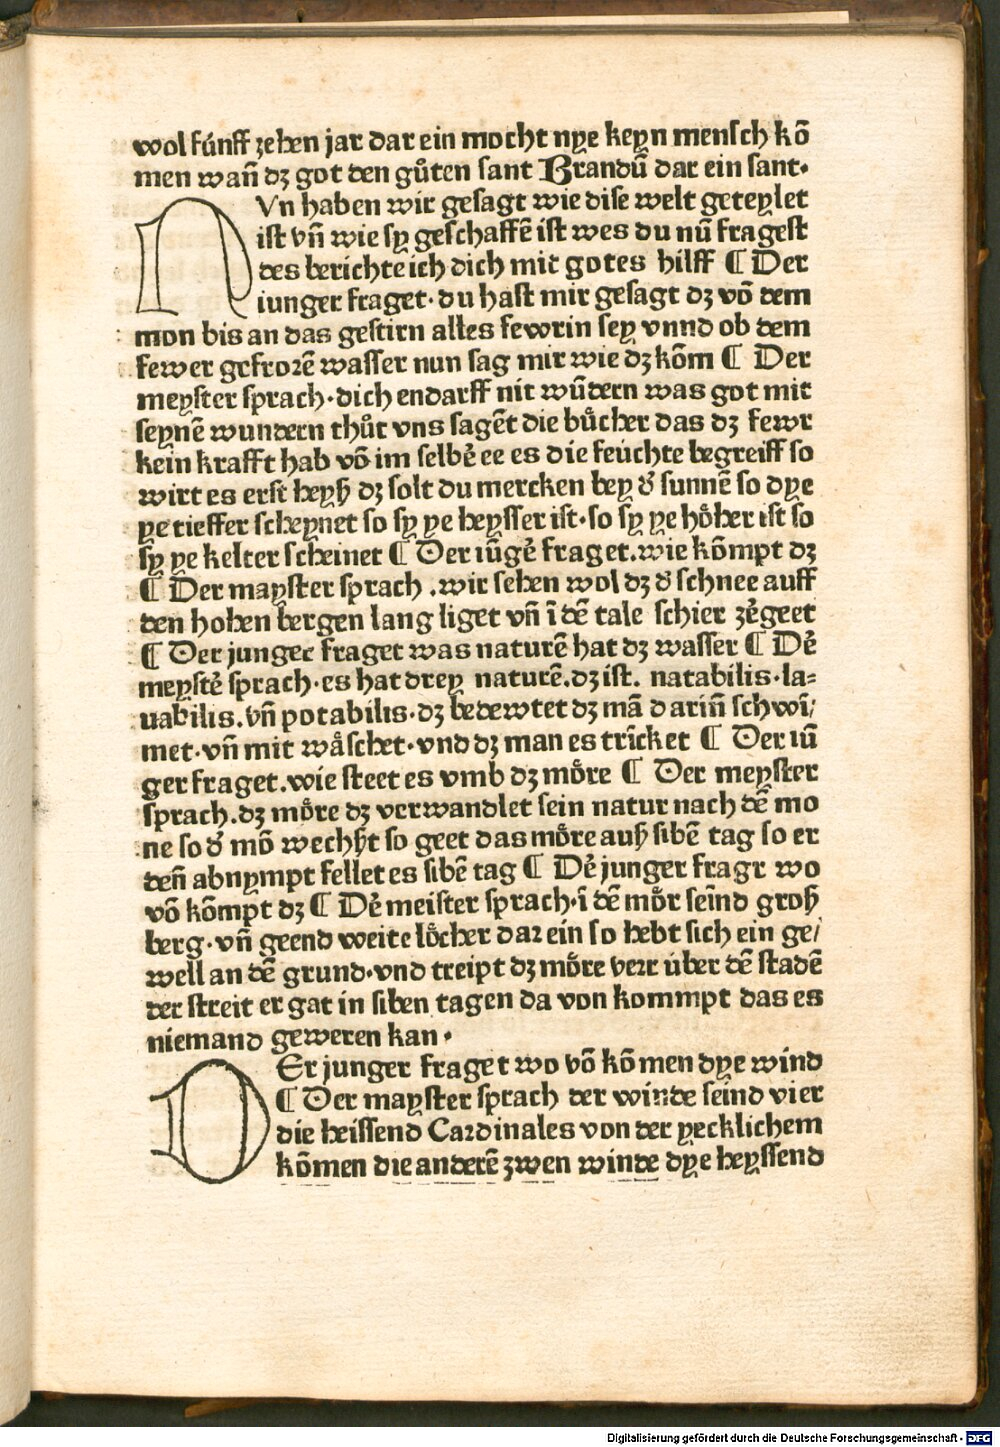 wol fúnff zehen jar dar ein mocht nye keyn mensch kō
men wañ dz got den gůten sant Brandū dar ein sant·
NVn haben wir gesagt wie dise welt geteylet
ist vñ wie sy geschaffē ist wes du nū fragest
des berichte ich dich mit gotes hilff ¶ Der
iunger fraget· du hast mir gesagt dz vō dem
mon bis an das gestirn alles fewrin sey vnnd ob dem
fewer gefrorē wasser nun sag mir wie dz kōm ¶ Der
meyster sprach· dich endarff nit wūdern was got mit
seynē wundern thůt vns sagēt die bůcher das dz fewr
kein krafft hab vō im selbē ee es die feuchte begreiff so
wirt es erst heyß dz solt du mercken bey ď sunnē so dye
ye tieffer scheynet so sy ye heysser ist· so sy ye hőher ist so
sy ye kelter scheinet ¶ Der iūgē fraget. wie kōmpt dz
¶ Der mayster sprach . wir sehen wol dz ď schnee auff
den hohen bergen lang liget vñ ī dē tale schier zēgeet
¶ Der junger fraget was naturē hat dz wasser ¶ Dē
meystē sprach· es hat drey naturē. dz ist. natabilis· la⸗
uabilis. vñ potabilis· dz bedewtet dz mā dariñ schwī/
met· vñ mit wåschet· vnd dz man es trīcket ¶ Der iū
ger fraget. wie steet es vmb dz mőre ¶ Der meyster
sprach. dz mőre dz verwandlet sein natur nach dē mo
ne so ď mō wechßt so geet das mőre auß sibē tag so er
deñ abnympt fellet es sibē tag ¶ Dē junger fragt wo
vō kōmpt dz ¶ Dē meister sprach· ī dē mőr seīnd groß
berg· vñ geend weite lőcher dar ein so hebt sich ein ge/
well an dē grund· vnd treipt dz mőre verr über dē stadē
der streit er gat in siben tagen da von kommpt das es
niemand geweren kan·
DEr junger fraget wo vō kōmen dye wind
¶ Der mayster sprach der winde seind vier
die heissend Cardinales von der yecklichem
kōmen die anderē zwen winde dye heyssend
Digitalisierung gefördert durch die Deutsche Forschungsgemeinschaft - DFG